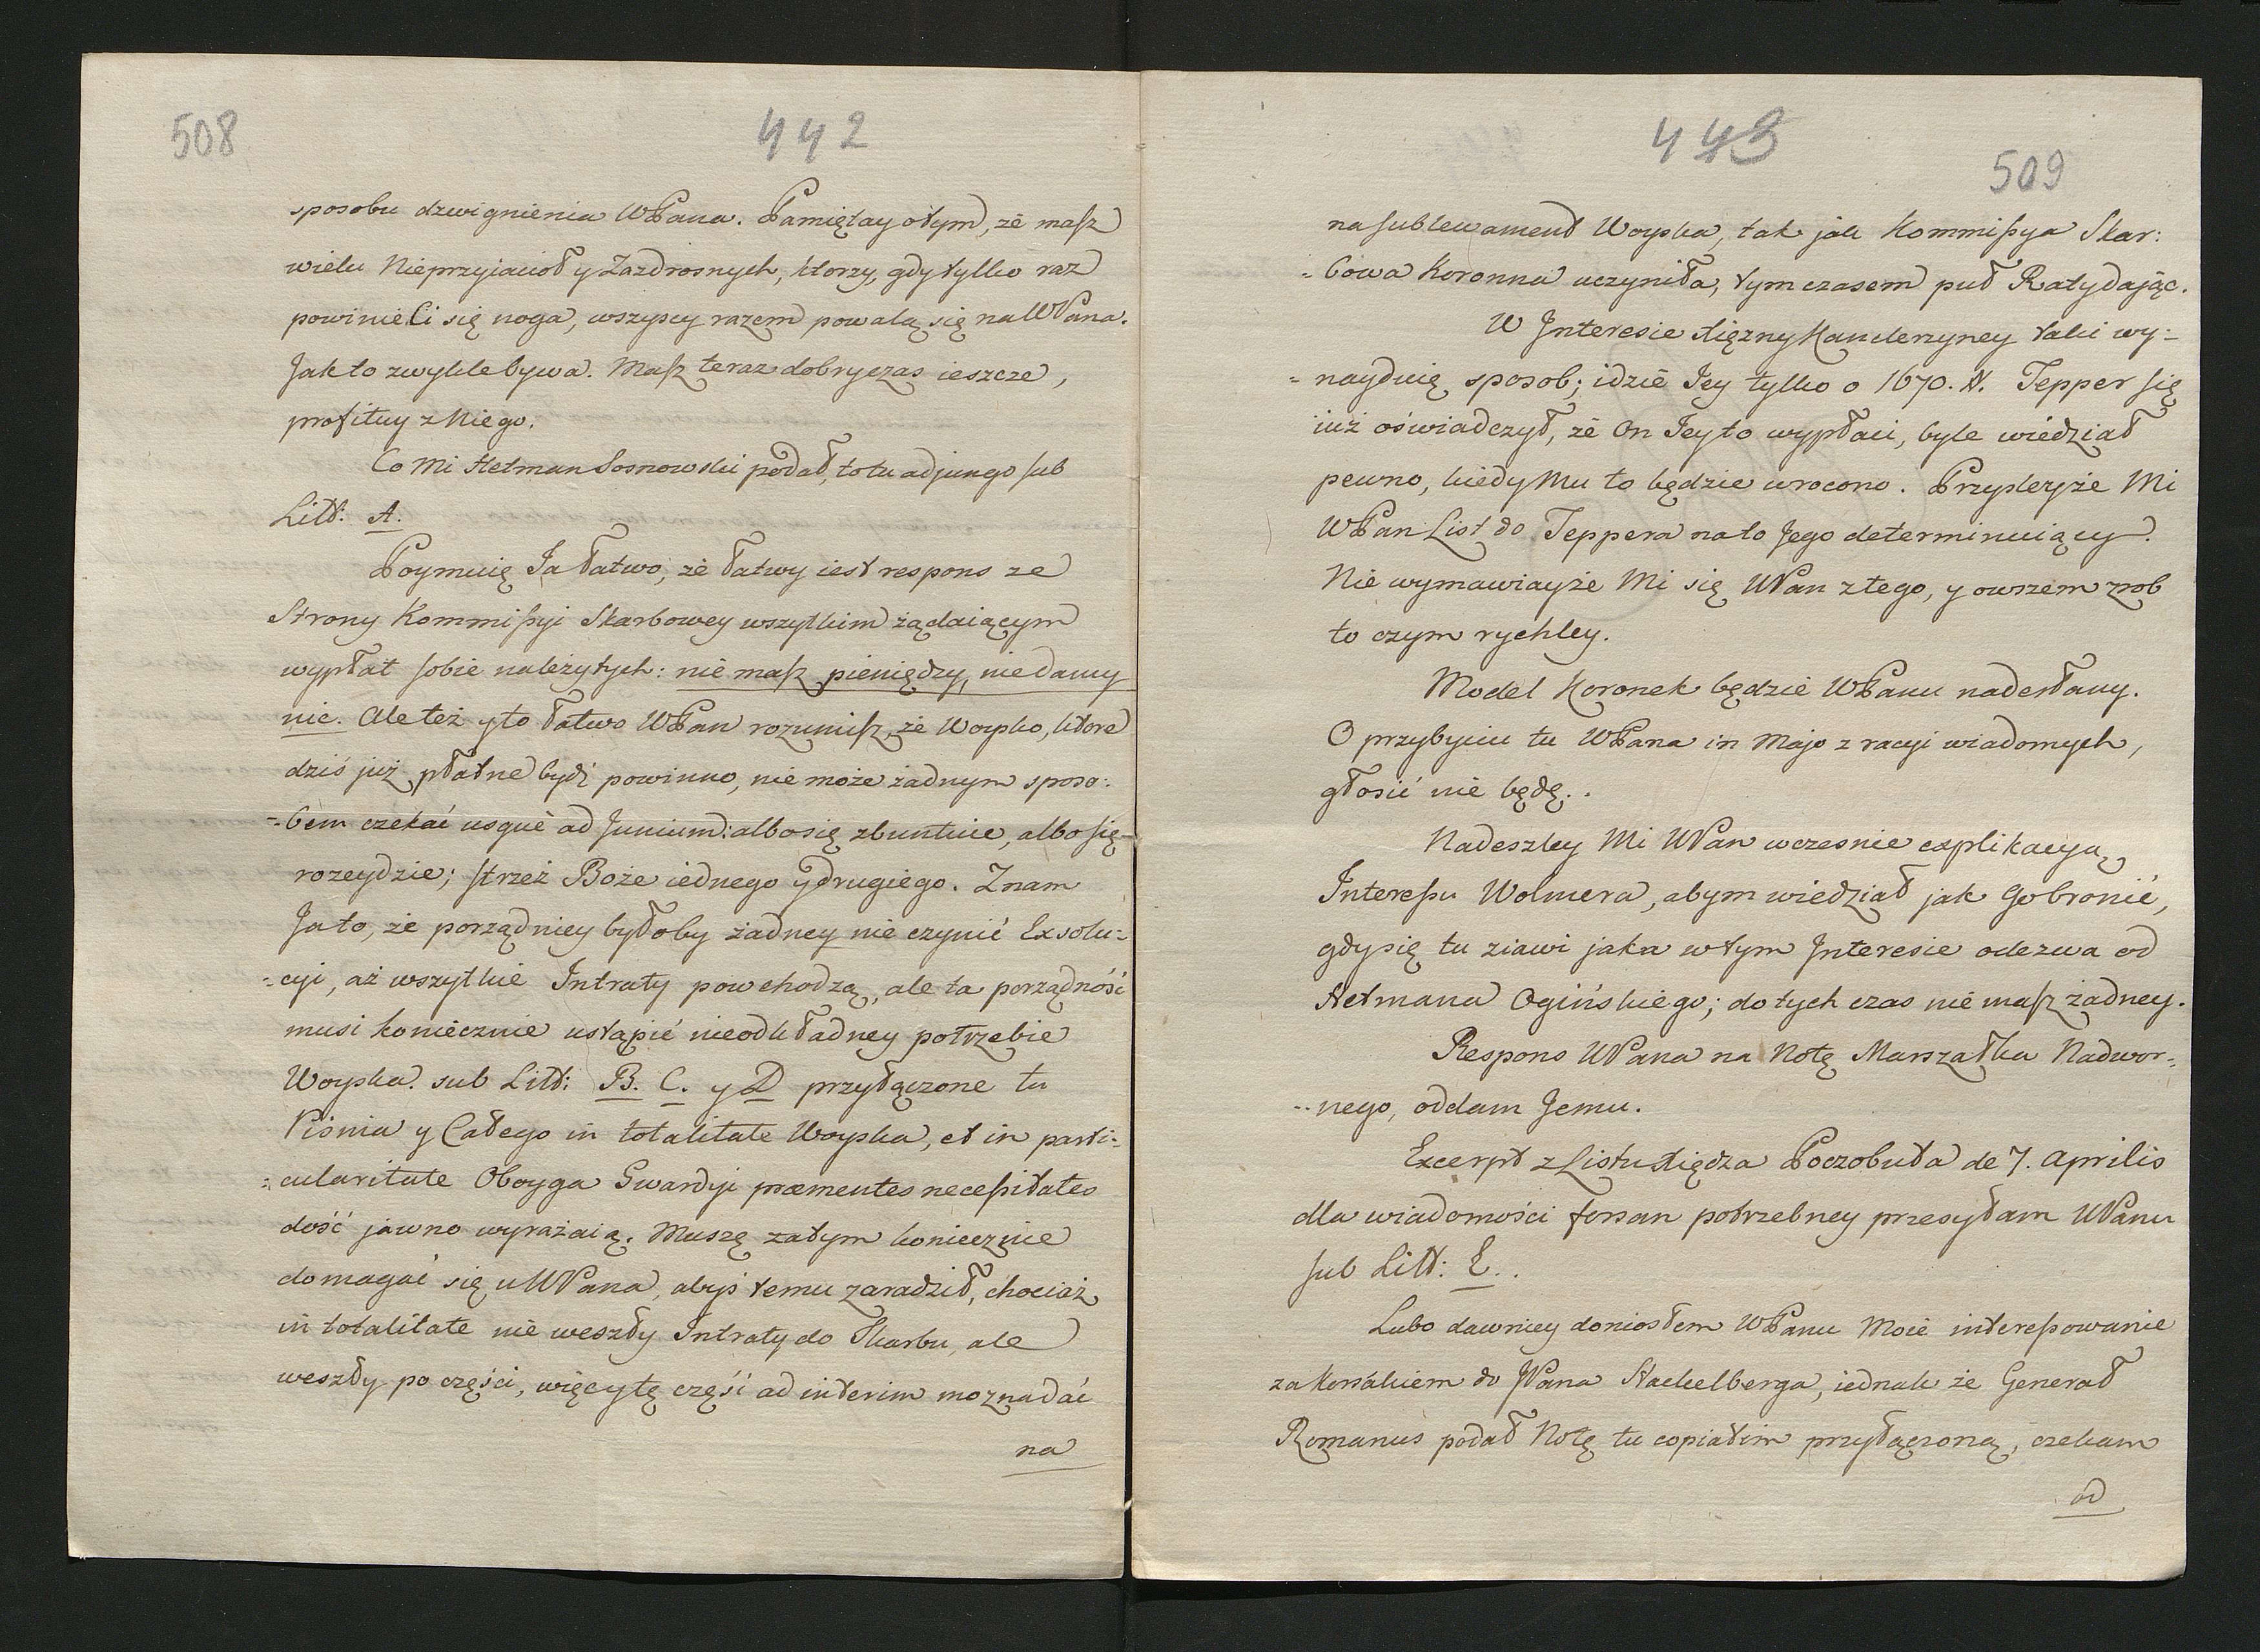 508
442
sposobu dzwignienia WPana. Pamiętay o tym, że masz
wielu Nieprzyiacioł y Zazdrosnych, ktorzy, gdy tylko raz
powinie Ci się noga, wszyscy razem powalą się na WPana.
Jak to zwykle bywa. Masz teraz dobry czas ieszcze,
profituy z Niego.
Co Mi Hetman Sosnowski podał, to tu adjungo sub
Litt: A.
Poymuię Ja łatwo, że łatwy iest respons ze
Strony Kommissyi Skarbowey wszytkim żądaiącym
wypłat sobie należytych: nie masz pieniędzy, nie damy
nic. Ale też y to łatwo WPan rozumisz, że Woysko, ktore
dziś już płatne bydź powinno, nie może żadnym sposo:
=bem czekać usque ad Junium: albo się zbuntuie, albo się
rozeydzie; strzeż Boże iednego y drugiego. Znam
Ja to, że porządniey byłoby żadney nie czynić Exsolu=
=cyi, aż wszytkie Intraty powchodzą, ale ta porządność
musi koniecznie ustąpić nieodkładney potrzebie
Woyska. sub Litt: B. C. y D przyłączone tu
Pisma y Całego in totalitate Woyska, et in parti=
=cularitate Oboyga Gwardyi præmentes necessitates
dość jawno wyrażaią. Muszę zatym koniecznie
domagać się u WPana, abyś temu zaradził, chociaż
in totalitate nie weszły Intraty do Skarbu, ale
weszły po części, więc y tę część ad interim można dać
na
443
509
na sublewament Woyska, tak jak Kommissya Skar:
=bowa Koronna uczyniła, tym czasem puł Raty dając.
W Interesie Xiężny Kanclerzyney taki wy=
=nayduię sposob; idzie Jey tylko o 1670. #. Tepper się
iuż oświadczył, że On Jey to wypłaci, byle wiedział
pewno, kiedy Mu to będzie wrocono. Przyszlyże Mi
WPan List do Teppera na to Jego determinuiący.
Nie wymawiayże Mi się WPan z tego, y owszem zrob
to czym rychley.
Model Koronek będzie WPanu nadesłany.
O przybyciu tu WPana in Majo z racyi wiadomych,
głosić nie będę.
Nadeszley Mi WPan wczesnie explikacyą
Interessu Wolmera, abym wiedział jak Go bronić,
gdy się tu ziawi jaka w tym Interesie odezwa od
Hetmana Ogińskiego; do tych czas nie masz żadney.
Respons WPana na Notę Marszałka Nadwor=
=nego, oddam Jemu.
Excerpt z Listu Xiędza Poczobuta de 7. Aprilis
dla wiadomości forsan potrzebney przesyłam WPanu
sub Litt: E.
Lubo dawniey doniosłem WPanu Moie interessowanie
za Korsakiem do JPana Stackelberga, iednak że Generał
Romanus podał Notę tu copiatim przyłączoną, czekam
od